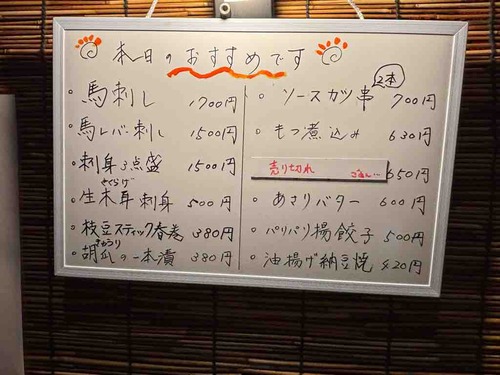 本日のおすすめです
・馬刺し 1700円
・馬レバー刺し 1500円
・刺身3点盛 1500円
きくらげ
・生木耳刺身 500円
・枝豆スティック春巻 380円
きゅうり
・胡瓜の一本漬 380円
2本
・ソースカツ串 700円
・もつ煮込み 630円
売り切れ ごめん… 650円
・あさりバター 600円
・パリパリ揚餃子 500円
・油揚げ納豆焼 420円